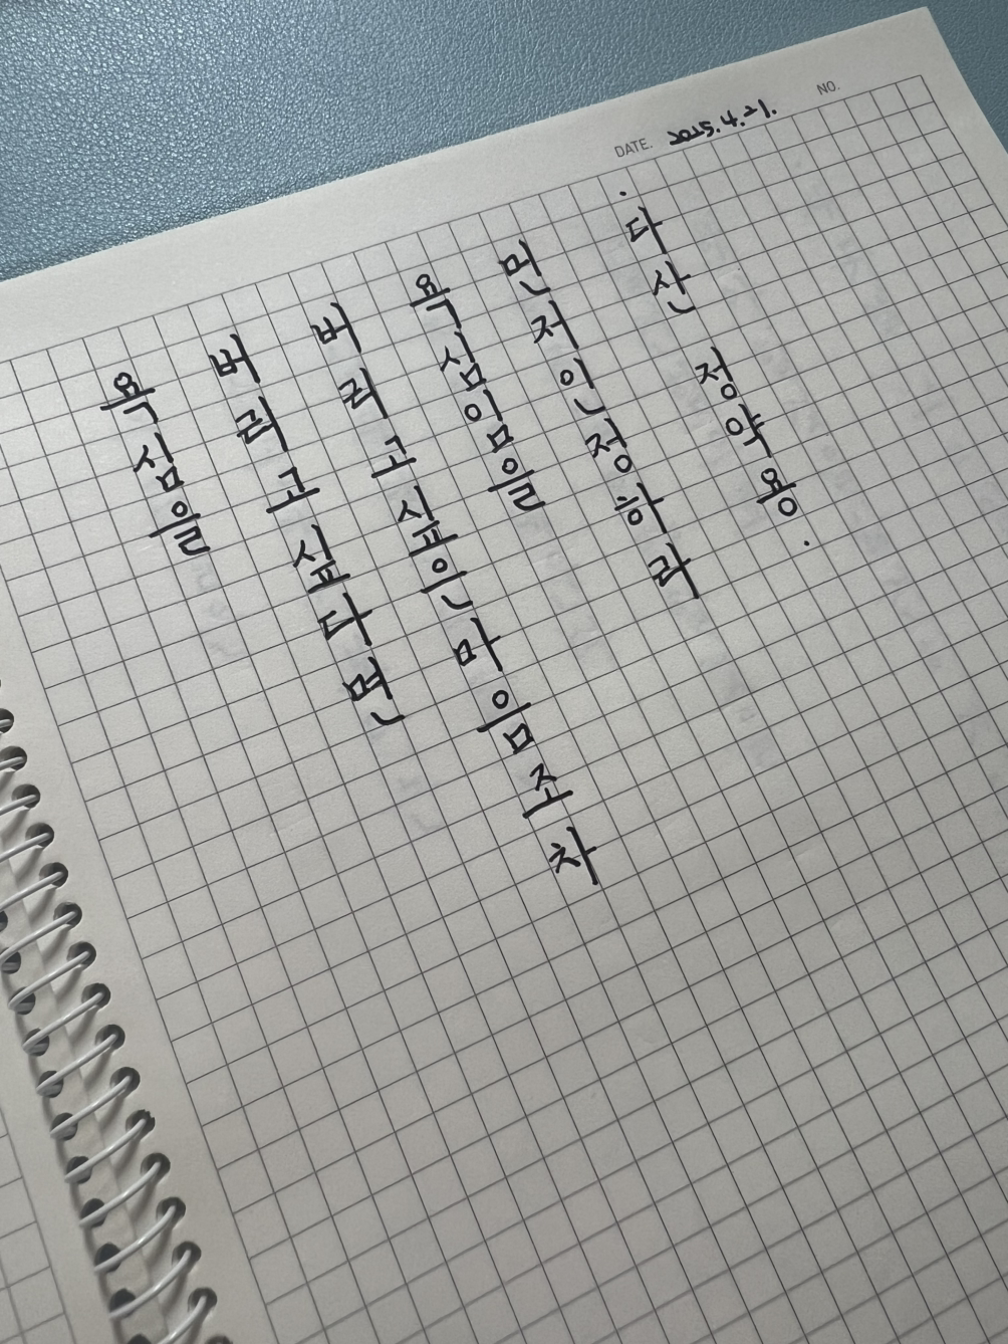 DATE. 2025.4.21. NO.
욕심을
버리고 싶다면
버리고 싶은 마음조차
욕심임을
먼저 인정하라
· 다산 정약용 ·